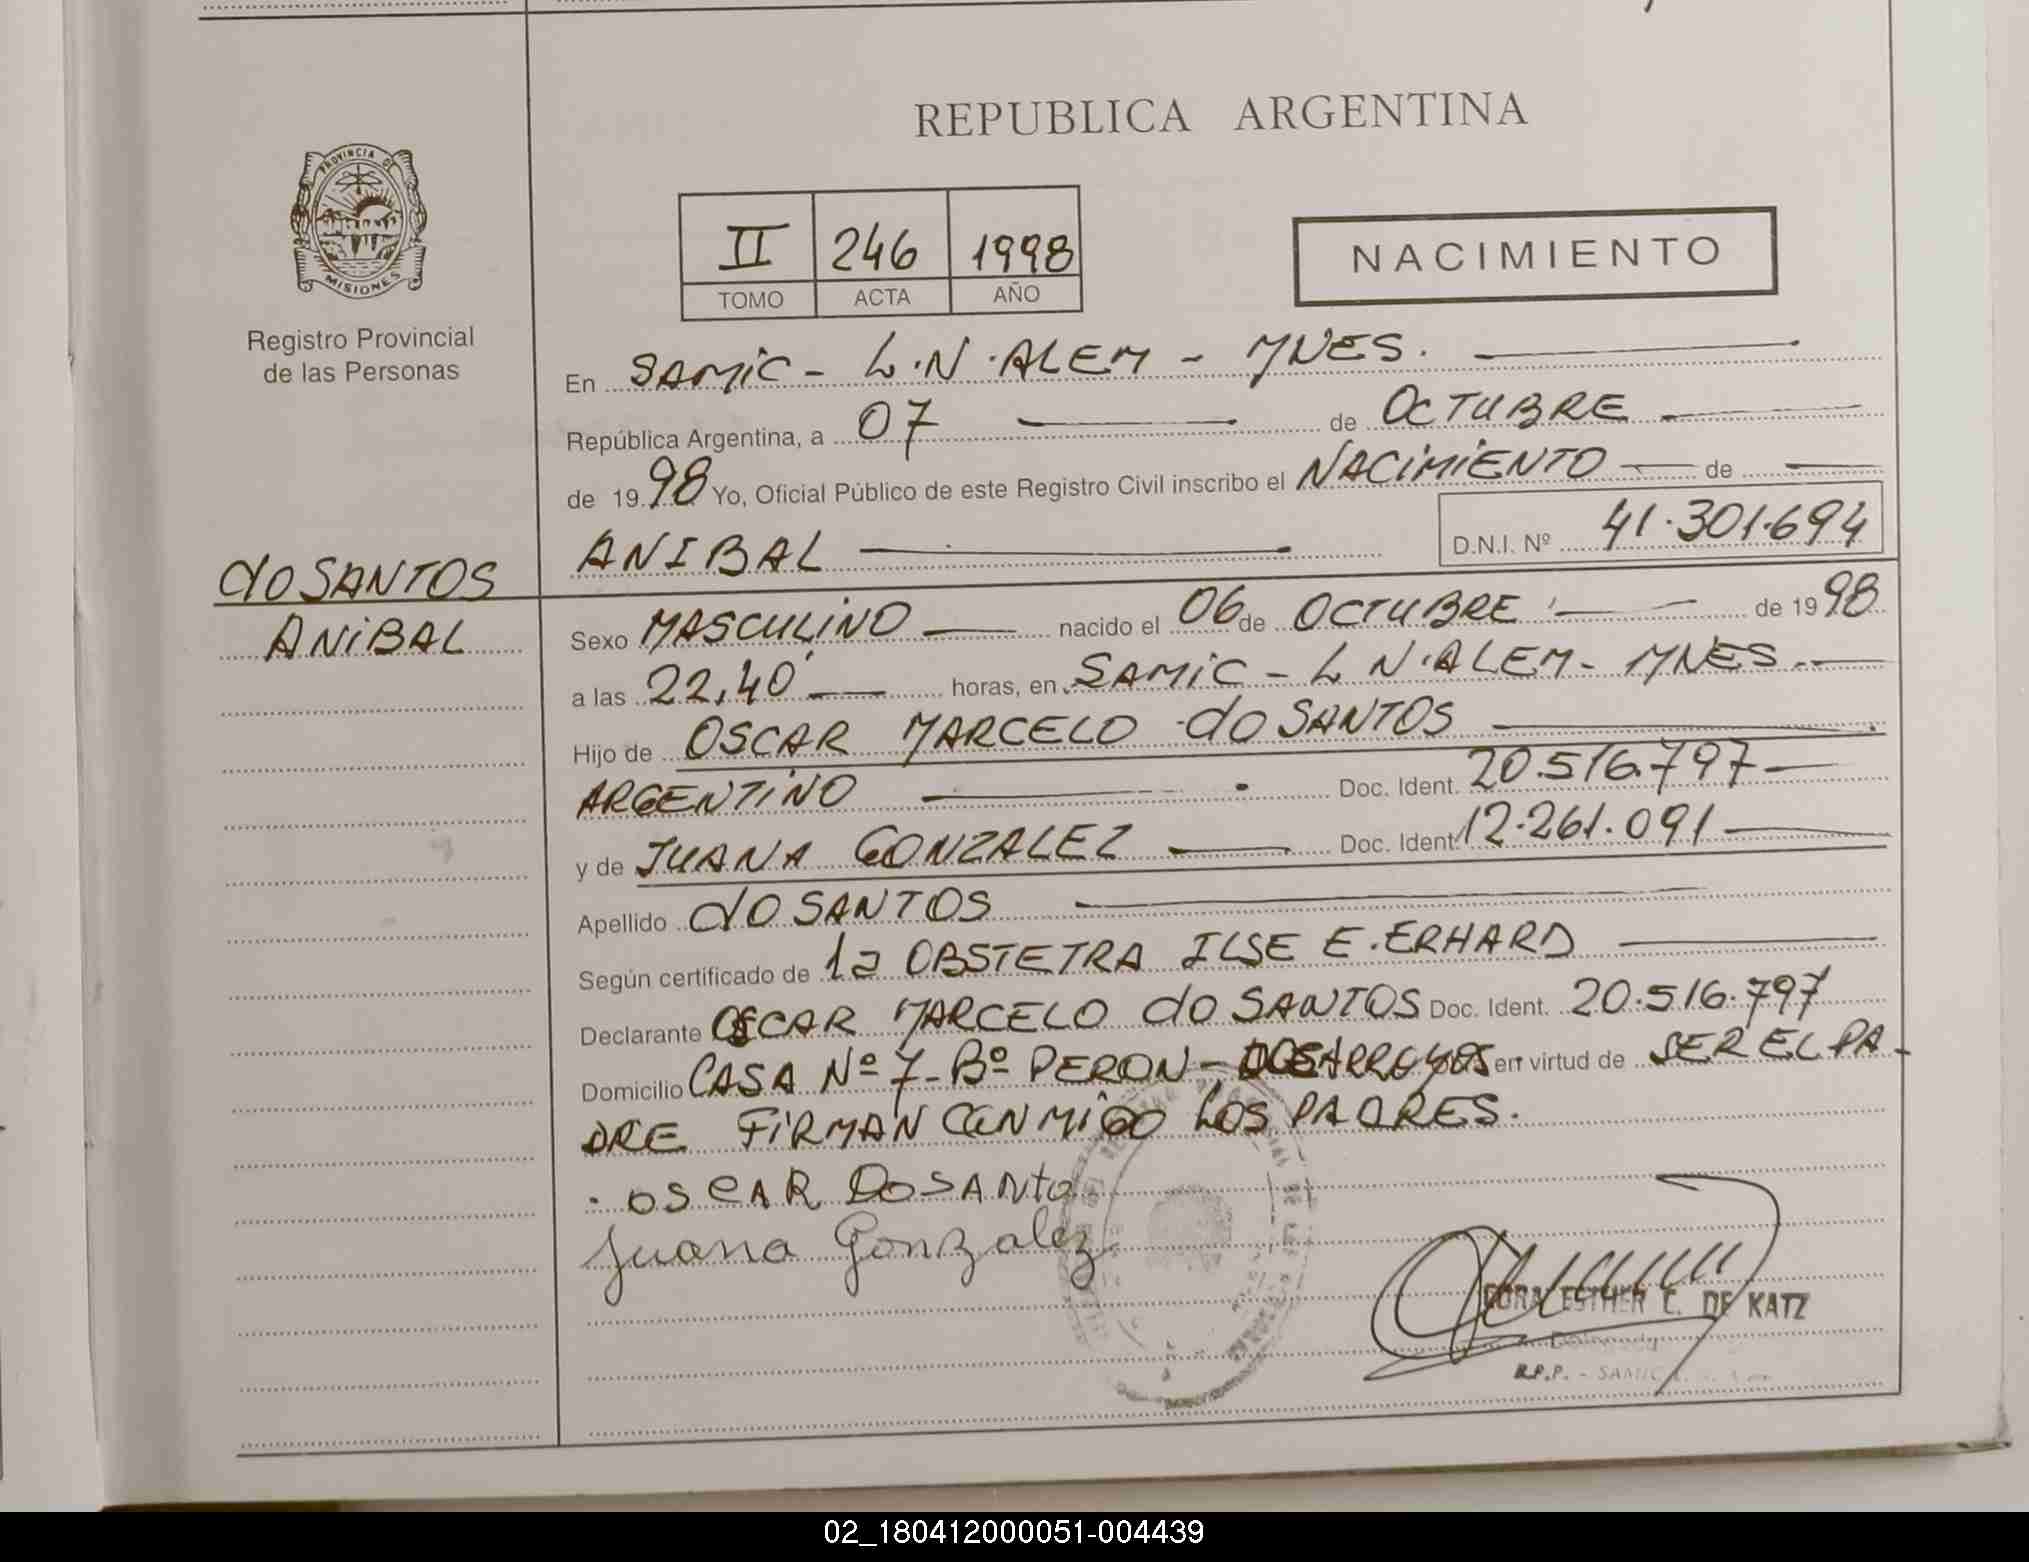 REPUBLICA ARGENTINA
PROVINCIA DE
MISIONES
Registro Provincial
de las Personas
II 246 1998
TOMO ACTA AÑO
NACIMIENTO
En SAMIC - L.N. ALEM - MNES.
República Argentina, a 07 de OCTUBRE
de 1998 Yo, Oficial Público de este Registro Civil inscribo el NACIMIENTO de
ANIBAL D.N.I. Nº 41.301.694
do SANTOS
ANIBAL
Sexo MASCULINO nacido el 06 de OCTUBRE de 1998
a las 22,40 horas, en SAMIC - L N. ALEM - MNES.
Hijo de OSCAR MARCELO do SANTOS
ARGENTINO Doc. Ident. 20.516.797
y de JUANA GONZALEZ Doc. Ident. 12.261.091
Apellido do SANTOS
Según certificado de la OBSTETRA ILSE E. ERHARD
Declarante OSCAR MARCELO do SANTOS Doc. Ident. 20.516.797
Domicilio CASA Nº 7 - Bº PERON - en virtud de SER EL PA-
DRE FIRMAN CONMIGO LOS PADRES.
OSCAR DOSANTO
Juana Gonzalez
DORA ESTHER C. DE KATZ
Delegada
R.P.P. - SAMIC
02_180412000051-004439